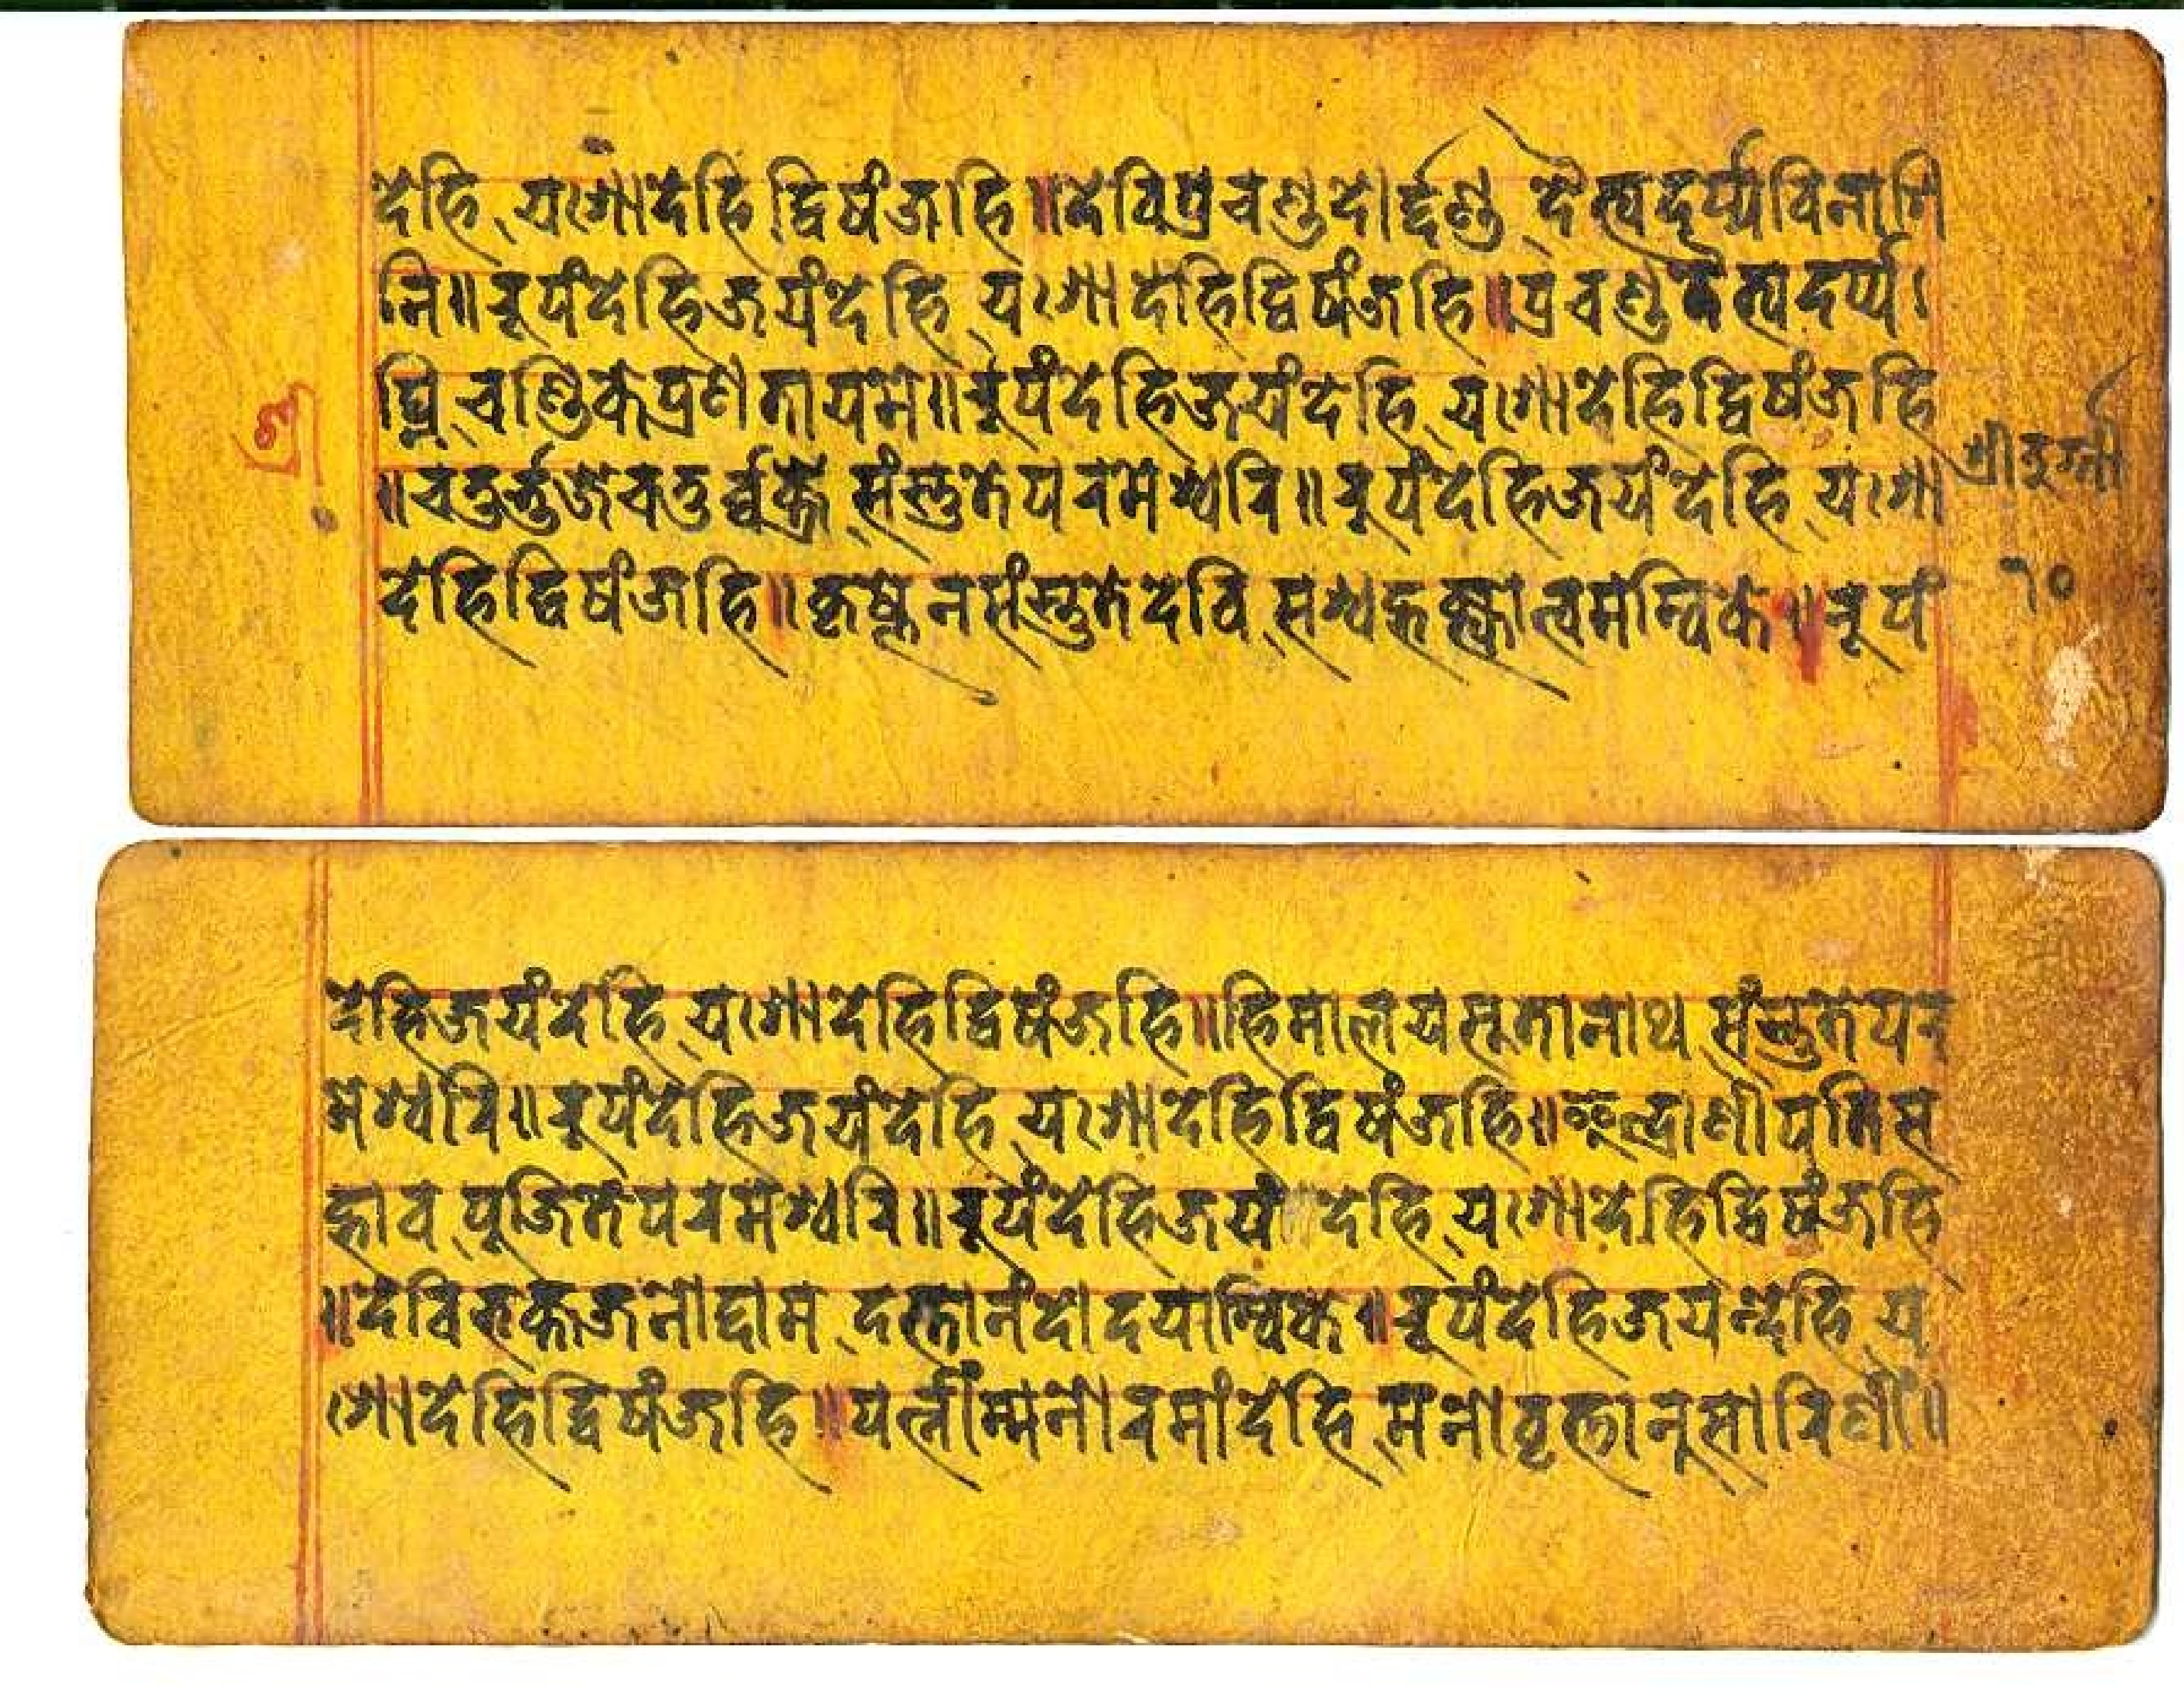 देहि यशोदेहि द्विषंजहि॥देविप्रचण्डदोर्द्दण्ड दैत्यदर्प्पविनाशि
नि॥रूपंदेहिजयंदेहि यशोदेहिद्विषंजहि॥प्रचण्डदैत्यदर्प्प
घ्नि चण्डिकेप्रणतायमे॥रूपंदेहिजयंदेहि यशोदेहिद्विषंजहि
॥चतुर्भुजेचतुर्व्वक्त्रे संस्तुतेपरमेश्वरि॥रूपंदेहिजयंदेहि यशो
श्रीदुर्गा
देहिद्विषंजहि॥कृष्णेनसंस्तुतेदेवि सश्वद्भक्त्यात्वमम्बिके॥रूपं
१०
देहिजयंदेहि यशोदेहिद्विषंजहि॥हिमालयसूतानाथ संस्तुतेपर
मेश्वरि॥रूपंदेहिजयंदेहि यशोदेहिद्विषंजहि॥इन्द्राणीपतिस
द्भाव पूजितेपरमेश्वरि॥रूपंदेहिजयं देहि यशोदेहिद्विषंजहि
॥देविभक्तजनोद्दाम दत्तानंदोदयाम्बिके॥रूपंदेहिजयन्देहि य
शोदेहिद्विषंजहि॥पत्नींम्मनोरमांदेहि मनोवृत्तानूसारिणीं॥